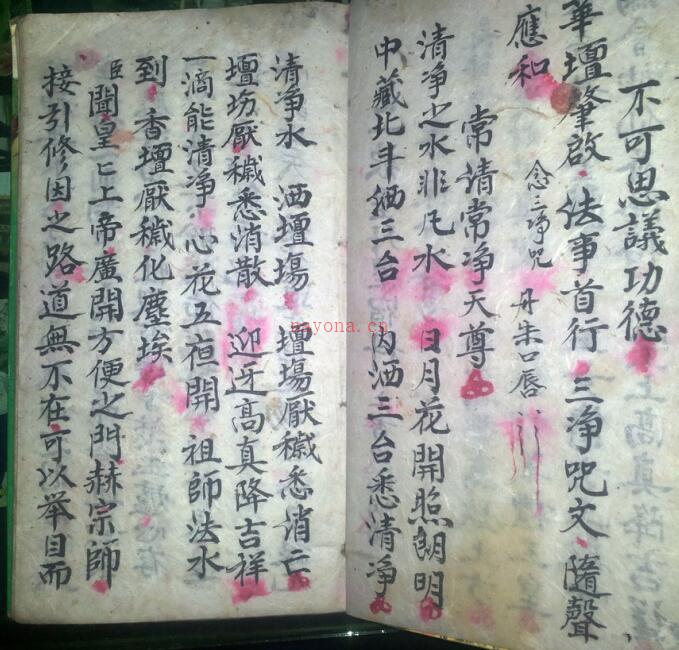 不可思議功德
華壇肇啟法事首行三净咒文隨聲
應和 念三净咒 丹朱口唇
常清常净天尊
清净之水非凡水 日月花開照朗明
中藏北斗 三台 内洒三台悉清净
清净水 洒壇場 壇場厭穢悉消亡
壇場厭穢悉消散 迎迓高真降吉祥
一滴能清净心花五夜開 祖師法水
到香壇厭穢化塵埃
臣聞皇匕上帝廣開方便之門赫宗師
接引修因之路道無不在可以举目而
nayona.cn